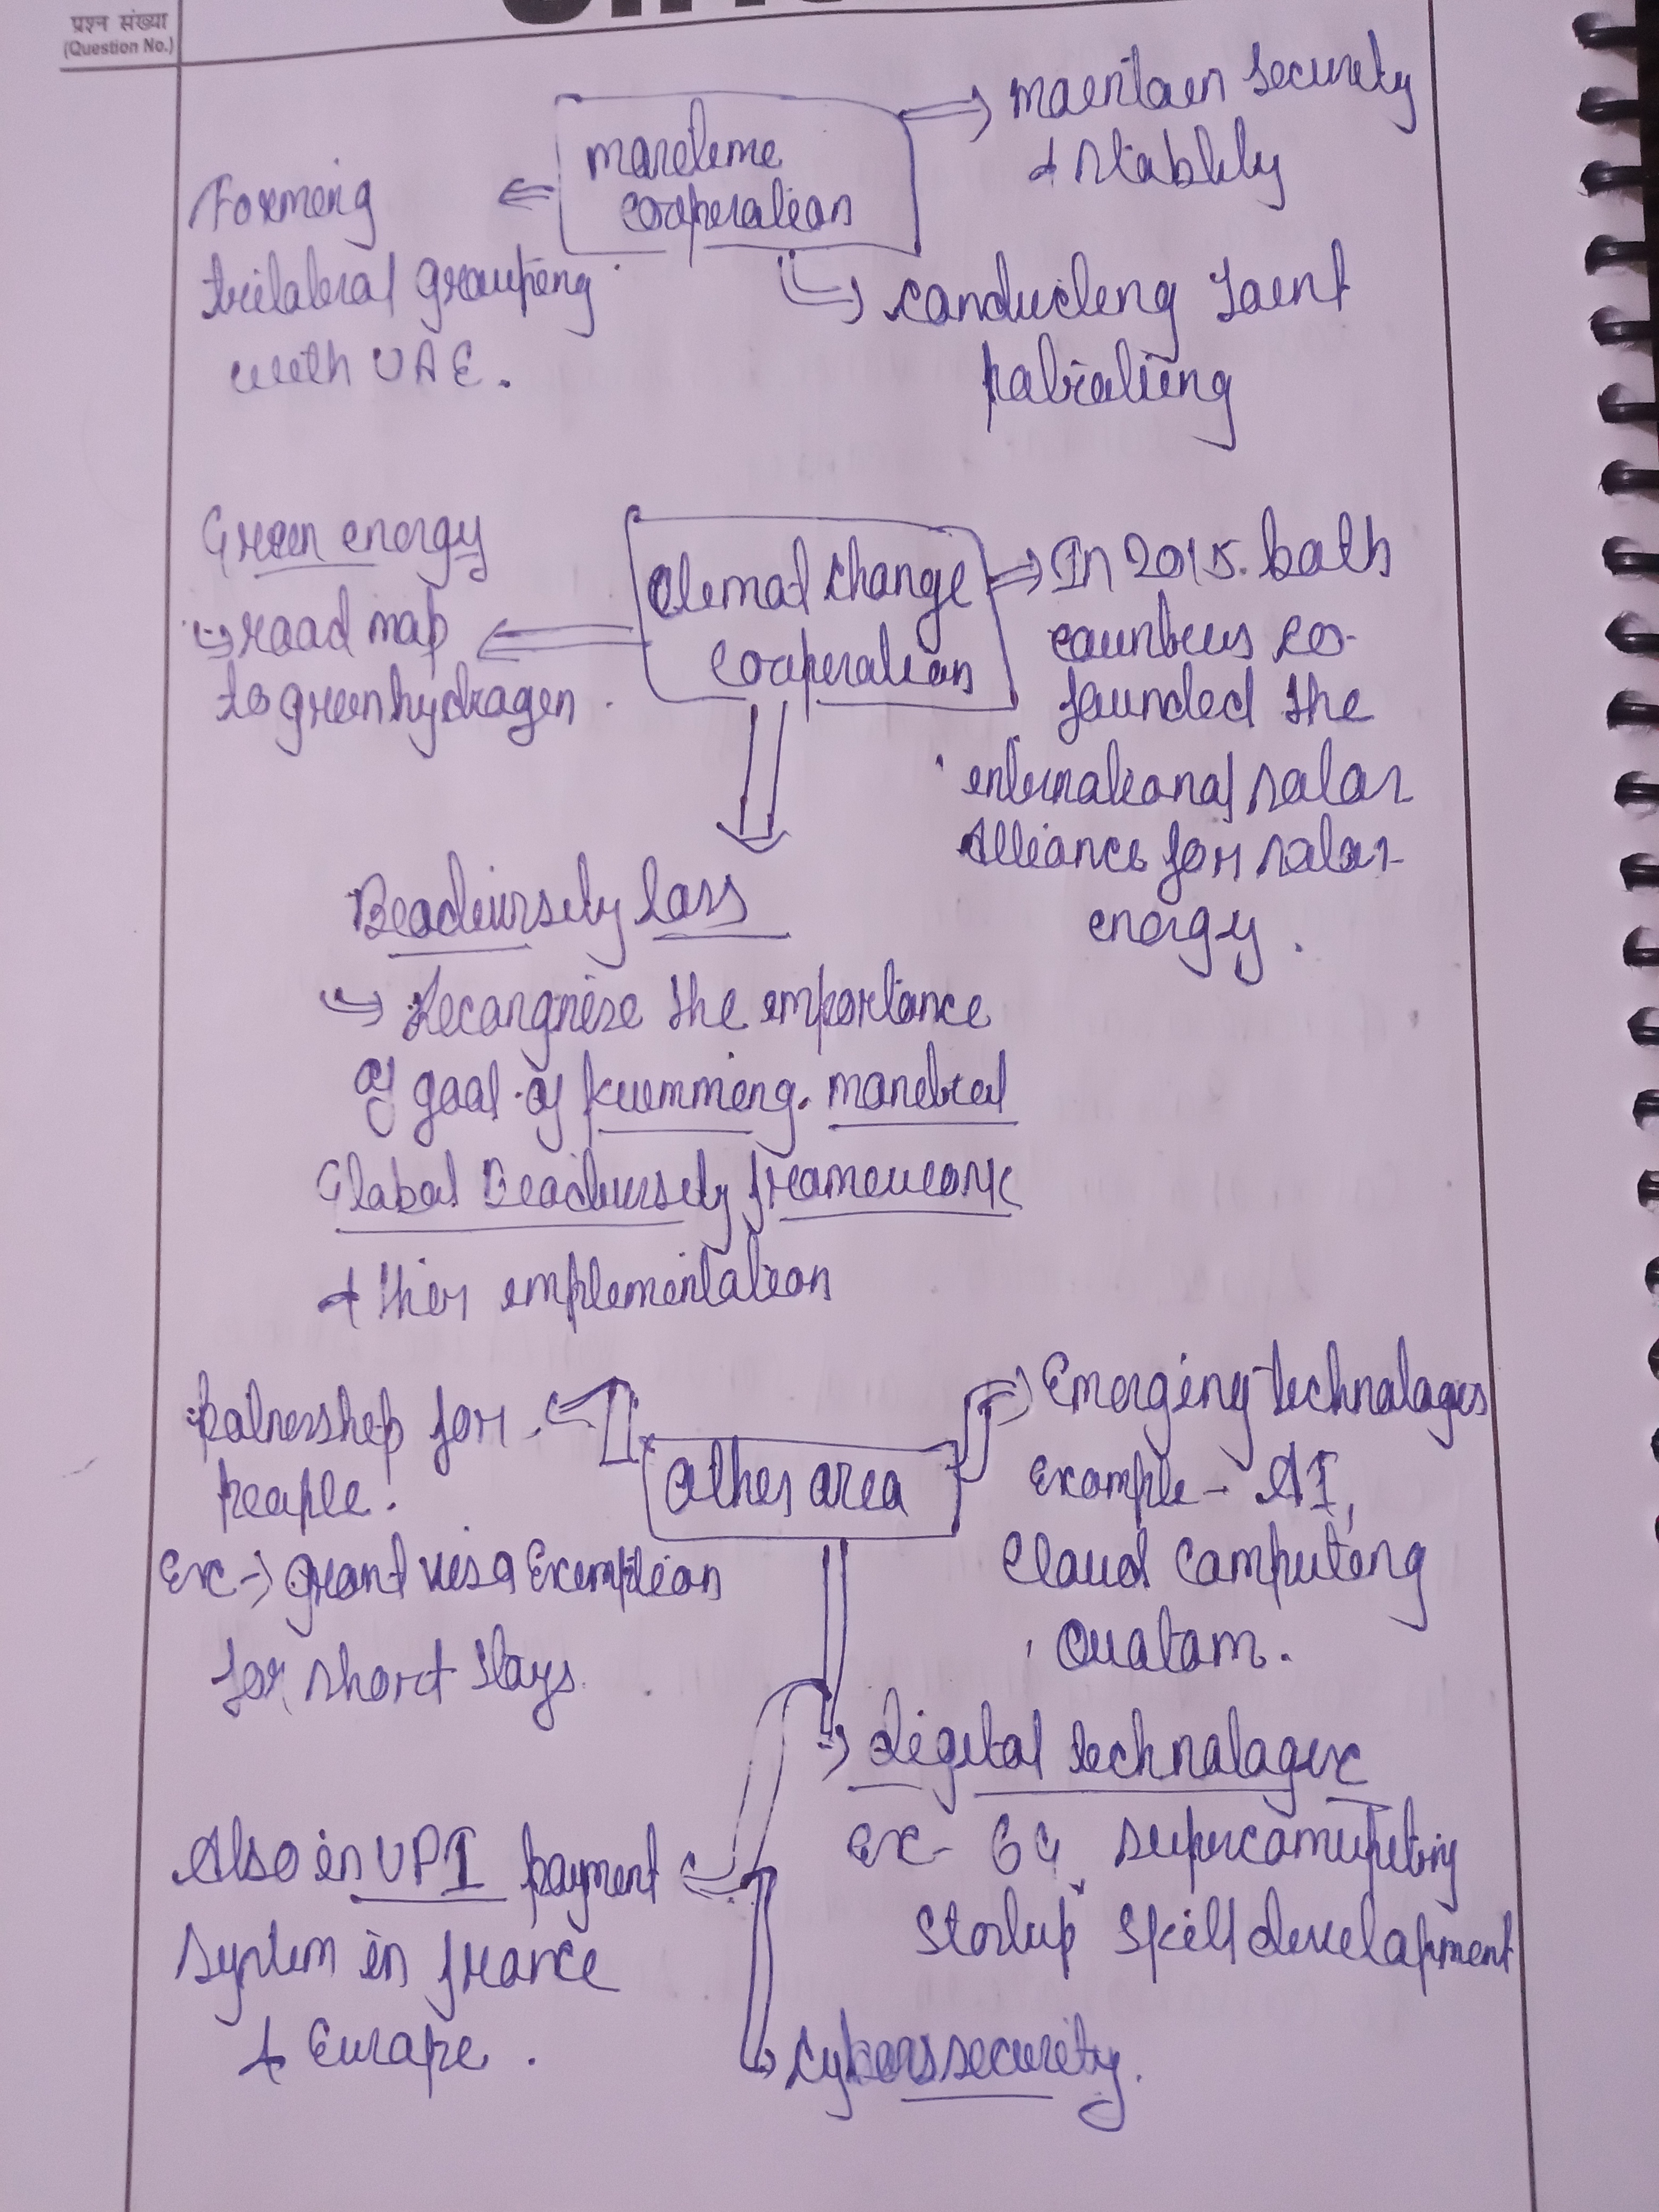 प्रश्न संख्या
(Question No.)
maritime
cooperation
maintain security
& stablity
Forming
trilateral grouping
with UAE.
conducting Joint
patroling
climat change
cooperation
Green energy
road map
to green hydrogen.
In 2015. both
countries co-
founded the
international solar
Alliance for solar
energy.
Biodiversity loss
Recongnise the importance
of goal of kunming. montreal
Global Biodiversity framework
& thier implementation
other area
partnership for
people.
Ex → grant visa Exemption
for short stays
Emerging technologies
Example - AI,
Cloud Computing
digital technologies
Ex- 6G, supercomuputing
Startup, Skill development
Also in UPI payment
System in france
& Europe.
Cyberssecurity.